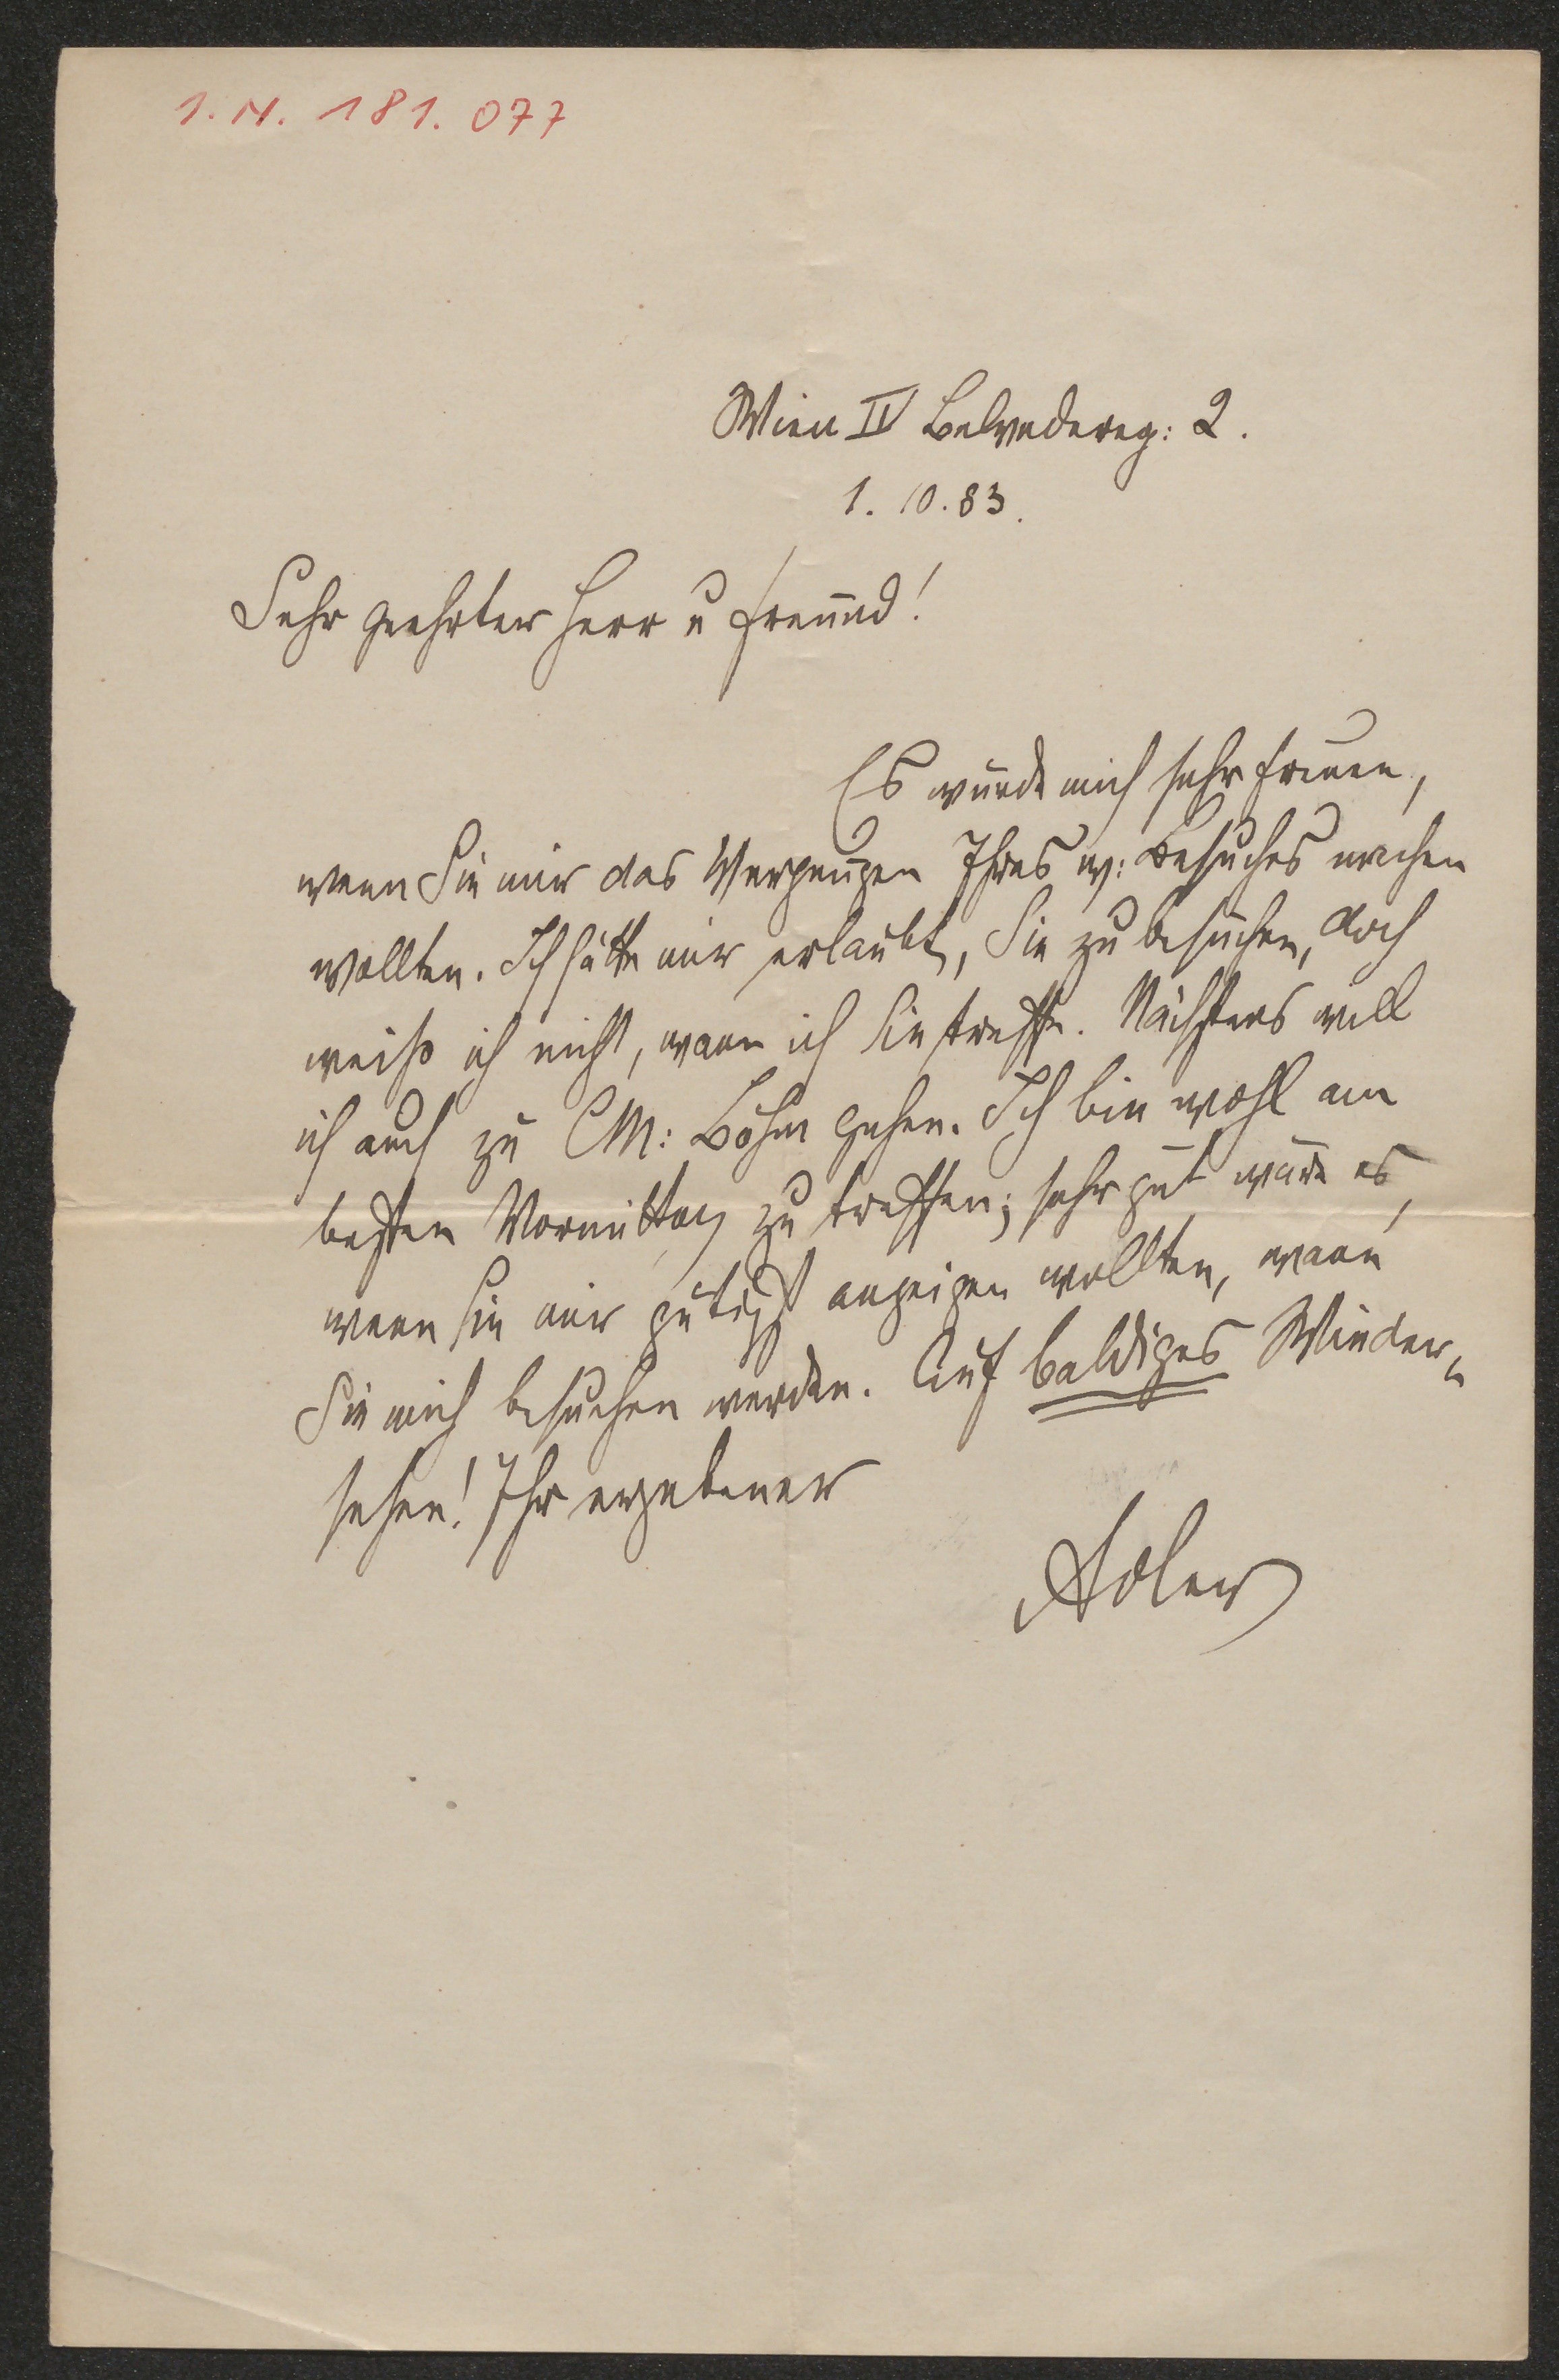 I.N. 181.077
Wien IV Belvedereg: 2.
1. 10. 83.
Sehr geehrter Herr u Freund!
Es würde mich sehr freuen,
wenn Sie mir das Vergnügen Ihres w: Besuches machen
wollten. Ich hätte mir erlaubt, Sie zu besuchen, doch
weiß ich nicht, wann ich Sie treffe. Nächstens will
ich auch zu CM: Böhm gehen. Ich bin wohl am
besten Vormittag zu treffen; sehr gut wäre es,
wenn Sie mir gütigst anzeigen wollten, wann
Sie mich besuchen werden. Auf baldiges Wieder„
sehen! Ihr ergebener
Adler